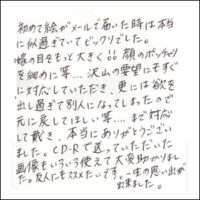 初めて絵がメールで届いた時は本当
に似過ぎていてビックリでした。
嫁の目をもっと大きく!!顔のポッチャリ
を細めに等…、沢山の要望にもすぐ
に対応していただき、更には欲を
出し過ぎて別人になってしまったので
元に戻してほしい等…まで対応し
て戴き、本当にありがとうござい
ました。CD-Rで送っていただいた
画像もいろいろ使えて大変助かりまし
た。友人にもススメたいです。一生の思い出が
出来ました。